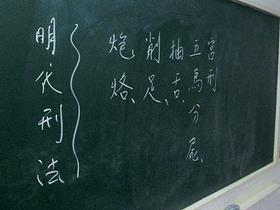 明代刑法
炮烙、
削足、
抽舌、
五馬分屍、
宮刑